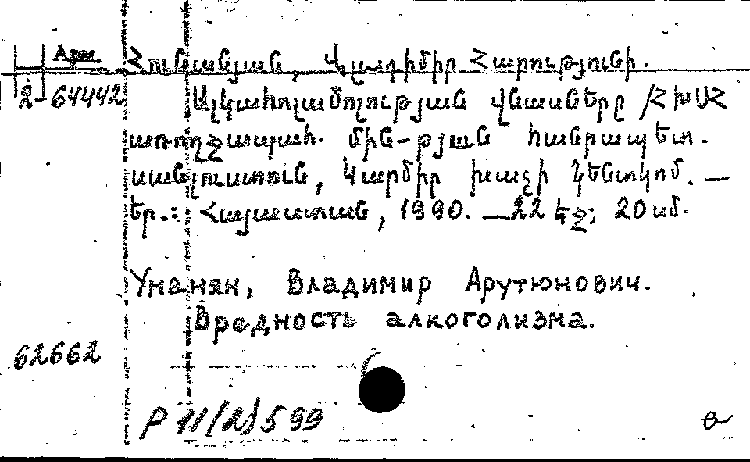 Հունանյան, Վլադիմիր Հարությունի.
2-64442 Ալկահոլամոլության վնասները /ՀԽՍՀ
առողջապահ. մին-թյան հանրապետ.
սանլուստուն, Կարմիր խաչի կենտկոմ. —
Եր.: Հայաստան, 1990. — 22 էջ; 20 սմ.
Унанян, Владимир Арутюнович.
Вредность алкоголизма.
62662
Р 11/(2)599